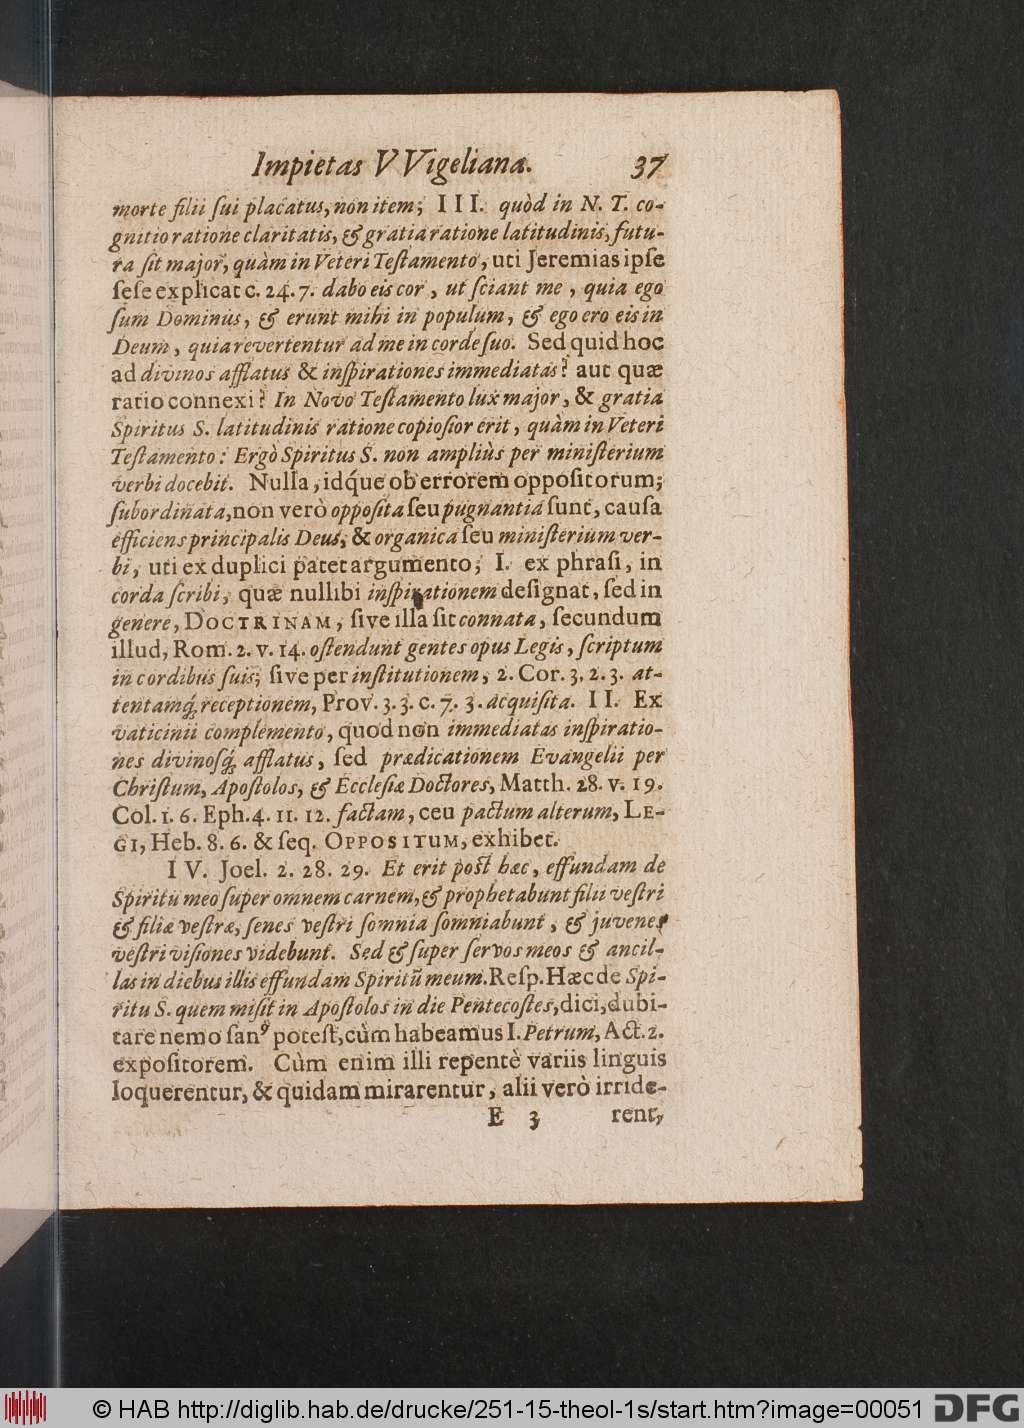 Impietas VVigeliana. 37
morte filii ſui placatus, non item; III. quòd in N. T. co-
gnitio ratione claritatis, & gratia ratione latitudinis, futu-
ra ſit major, quàm in Veteri Teſtamento, uti Jeremias ipſe
ſeſe explicat c. 24. 7. dabo eis cor, ut ſciant me, quia ego
ſum Dominus, & erunt mihi in populum, & ego ero eis in
Deum, quia revertentur ad me in corde ſuo. Sed quid hoc
ad divinos afflatus & inſpirationes immediatas? aut quæ
ratio connexi? In Novo Teſtamento lux major, & gratia
Spiritus S. latitudinis ratione copioſior erit, quàm in Veteri
Teſtamento: Ergò Spiritus S. non ampliùs per miniſterium
verbi docebit. Nulla, idq́ue ob errorem oppoſitorum;
ſubordinata, non verò oppoſita ſeu pugnantia ſunt, cauſa
efficiens principalis Deus, & organica ſeu miniſterium ver-
bi, uti ex duplici patet argumento; I. ex phraſi, in
corda ſcribi, quæ nullibi inſpirationem deſignat, ſed in
genere, DOCTRINAM, ſive illa ſit connata, ſecundum
illud, Rom. 2. v. 14. oſtendunt gentes opus Legis, ſcriptum
in cordibus ſuis; ſive per inſtitutionem, 2. Cor. 3. 2. 3. at-
tentamq́; receptionem, Prov. 3. 3. c. 7. 3. acquiſita. II. Ex
vaticinii complemento, quod non immediatas inſpiratio-
nes divinoſq́; afflatus, ſed prædicationem Evangelii per
Chriſtum, Apoſtolos, & Eccleſiæ Doctores, Matth. 28. v. 19.
Col. 1. 6. Eph. 4. 11. 12. factam, ceu pactum alterum, LE-
GI, Heb. 8. 6. & ſeq. OPPOSITUM, exhibet.
IV. Joel. 2. 28. 29. Et erit poſt hæc, effundam de
Spiritu meo ſuper omnem carnem, & prophetabunt filii veſtri
& filiæ veſtræ, ſenes veſtri ſomnia ſomniabunt, & juvenes
veſtri viſiones videbunt. Sed & ſuper ſervos meos & ancil-
las in diebus illis effundam Spiritũ meum. Reſp. Hæc de Spi-
ritu S. quem miſit in Apoſtolos in die Pentecoſtes, dici, dubi-
tare nemo ſanꝰ poteſt, cùm habeamus I. Petrum, Act. 2.
expoſitorem. Cùm enim illi repentè variis linguis
loquerentur, & quidam mirarentur, alii verò irride-
E 3 rent,
© HAB http://diglib.hab.de/drucke/251-15-theol-1s/start.htm?image=00051
DFG